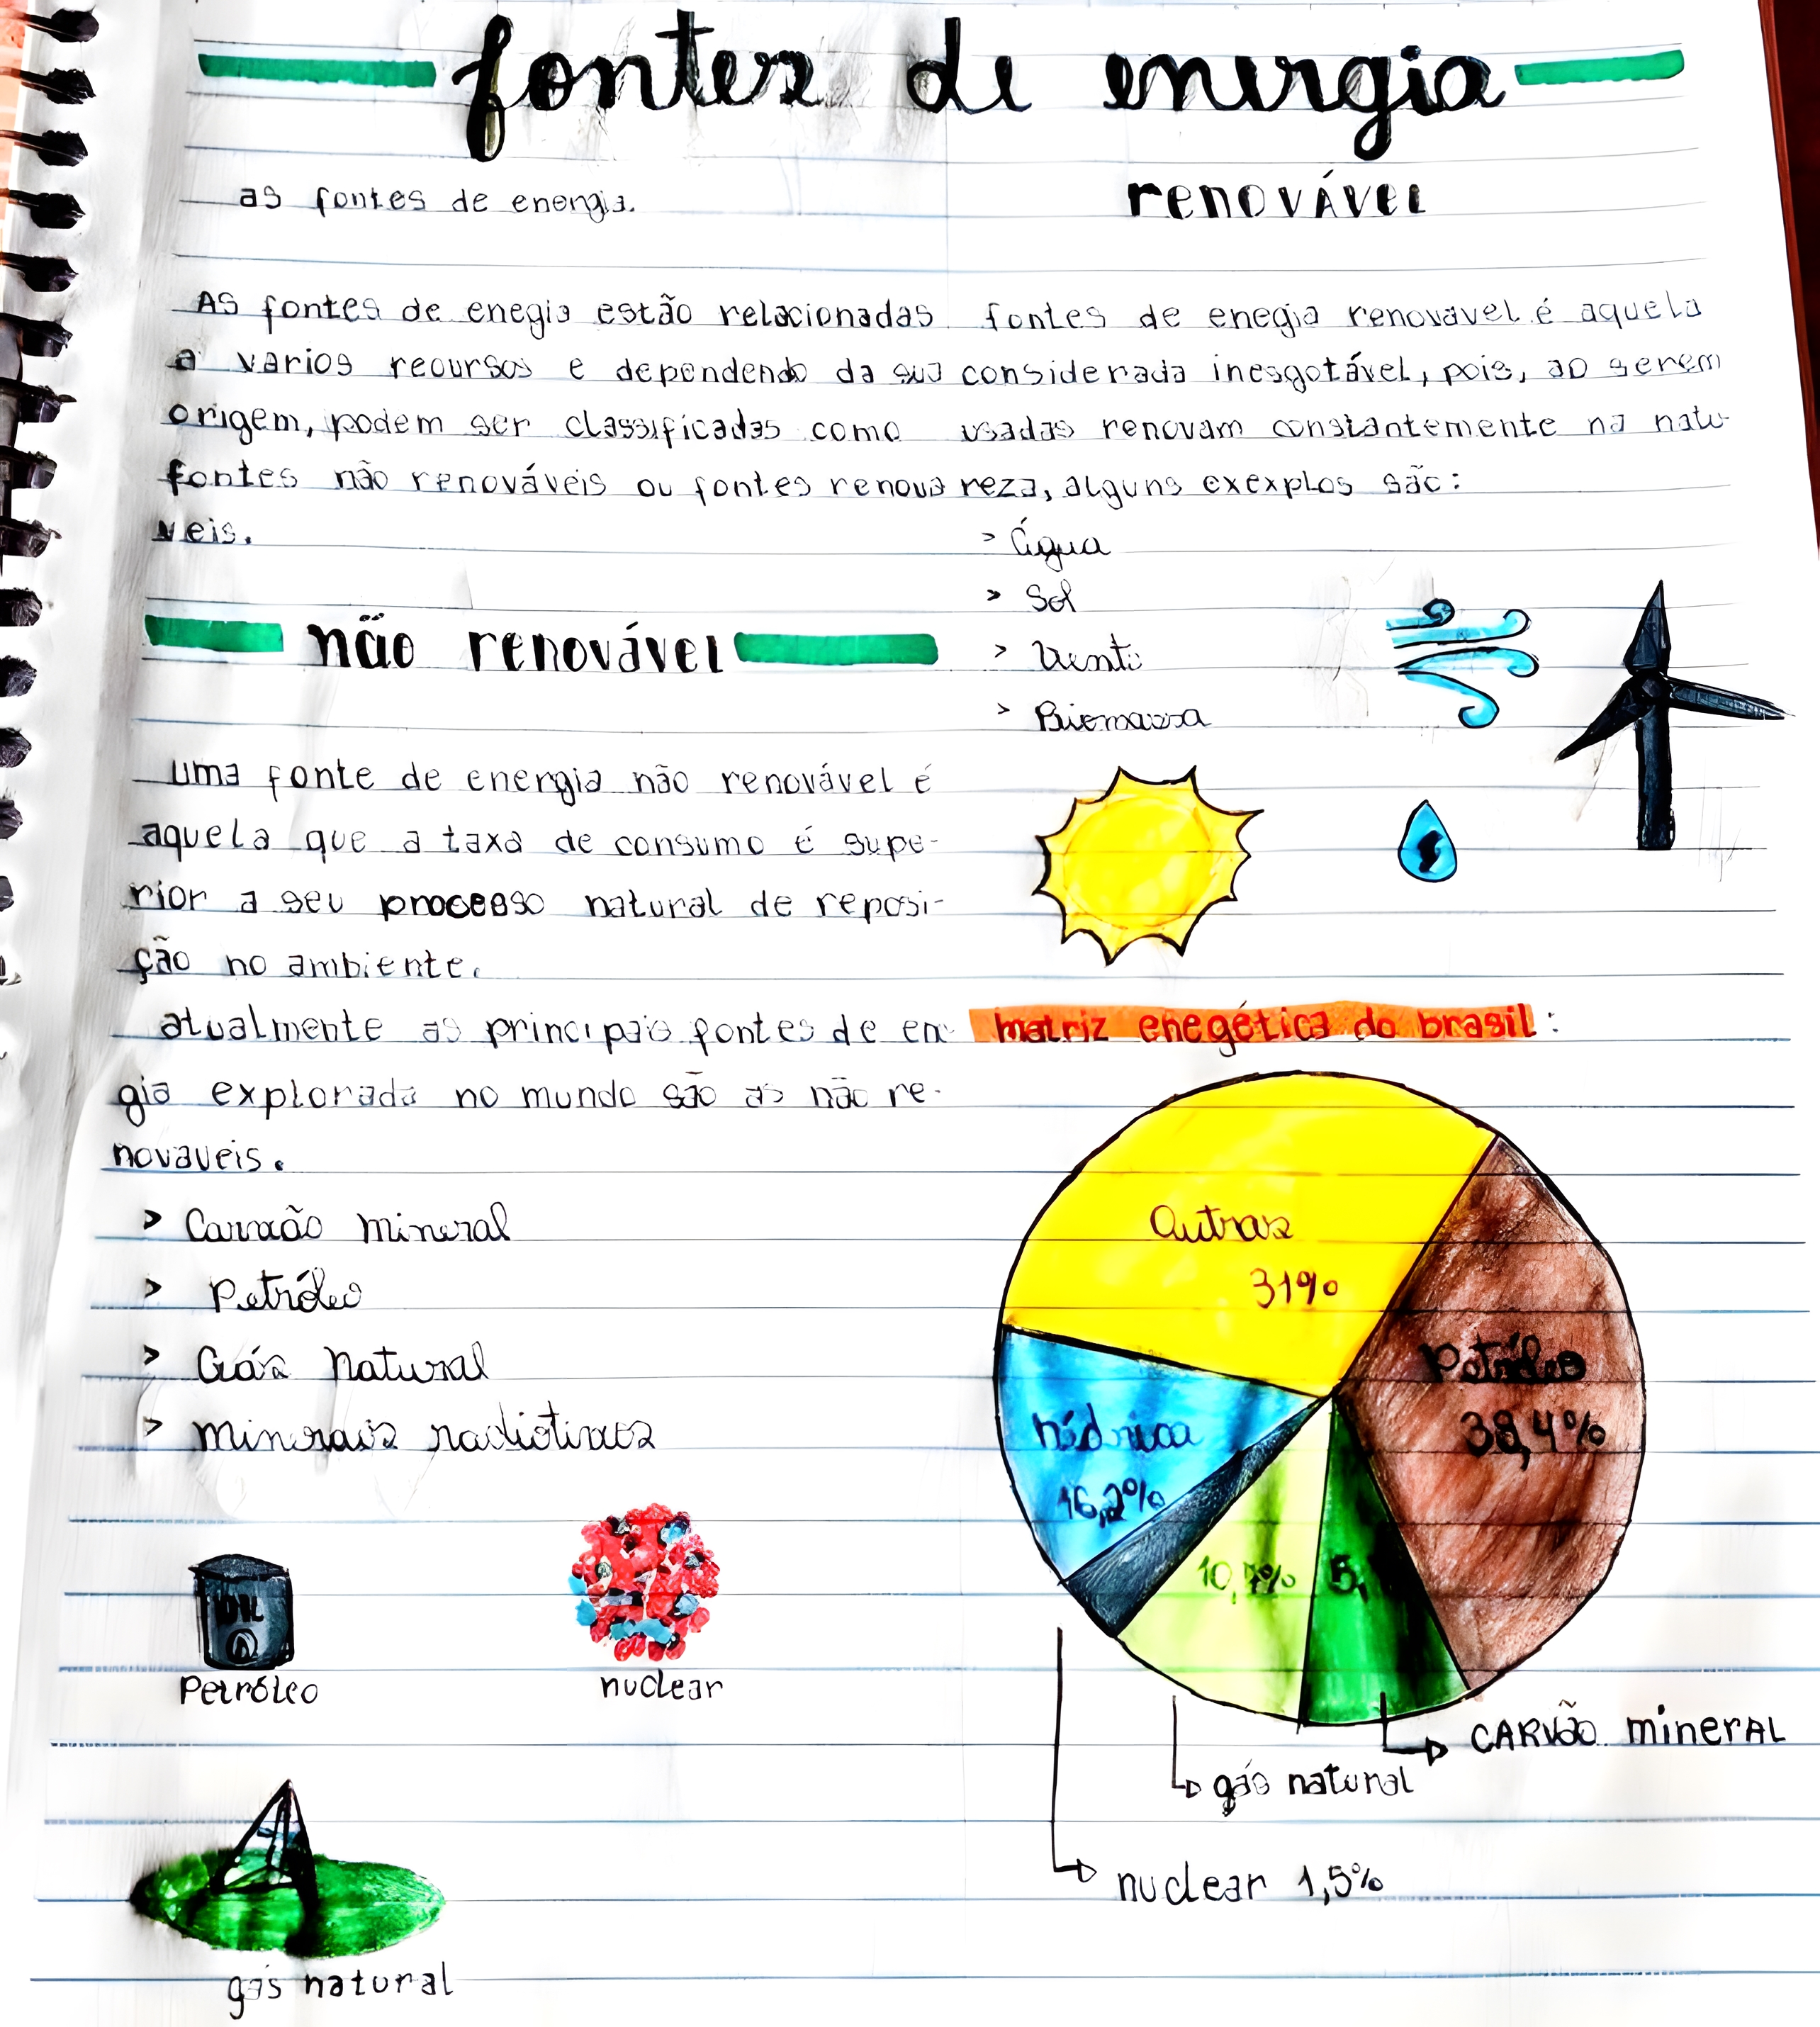 fontes de energia
as fontes de energia.
As fontes de enegia estão relacionadas
a varios recursos e dependendo da sua
origem, podem ser classificadas como
fontes não renováveis ou fontes renova
veis.
não renovável
uma fonte de energia não renovável é
aquela que a taxa de consumo é supe-
rior a seu processo natural de reposi-
ção no ambiente.
atualmente as principais fontes de en
gia explorada no mundo são as não re-
novaveis.
> Carvão mineral
> Petróleo
> Gás natural
> minerais radiotivos
OIL
Petróleo
nuclear
gás natural
renovável
fontes de enegia renovavel é aquela
considerada inesgotável, pois, ao serem
usadas renovam constantemente na natu-
reza, alguns exexplos são:
> Água
> Sol
> Vento
> Biomassa
matriz enegética do brasil:
Outras
31%
Petróleo
38,4%
hídrica
16,2%
10,7%
5,
CARVÃO mineral
gás natural
nuclear 1,5%